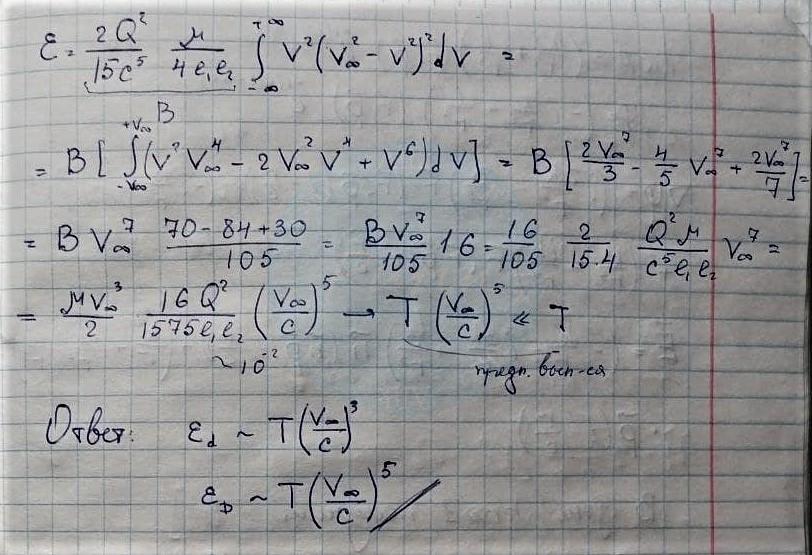 ε = 2Q²/15c⁵ μ/4e₁e₂ ∫_{-∞}^{+∞} V²(V∞² - V²)² dV =
B
= B [ ∫_{-V∞}^{+V∞} (V² V∞⁴ - 2V∞² V⁴ + V⁶) dV ] = B [ 2V∞⁷/3 - 4/5 V∞⁷ + 2V∞⁷/7 ] =
= B V∞⁷ 70-84+30/105 = B V∞⁷/105 16 = 16/105 2/15·4 Q²μ/c⁵e₁e₂ V∞⁷ =
= μV∞³/2 16Q²/1575e₁e₂ (V∞/c)⁵ → T (V∞/c)⁵ ≪ T
~10⁻² предп. вып-ся
Ответ: ε_d ~ T(V∞/c)³
ε_D ~ T(V∞/c)⁵